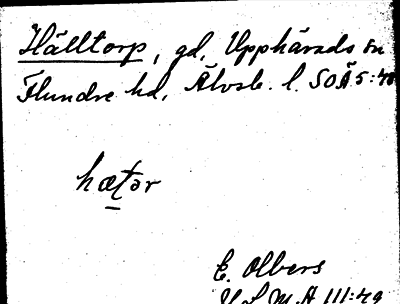 Hälltorp, gd, Upphärads sn
Flundre hd, Älvsb. l. SOÄ 5:
hætər
E. Olbers
III:49